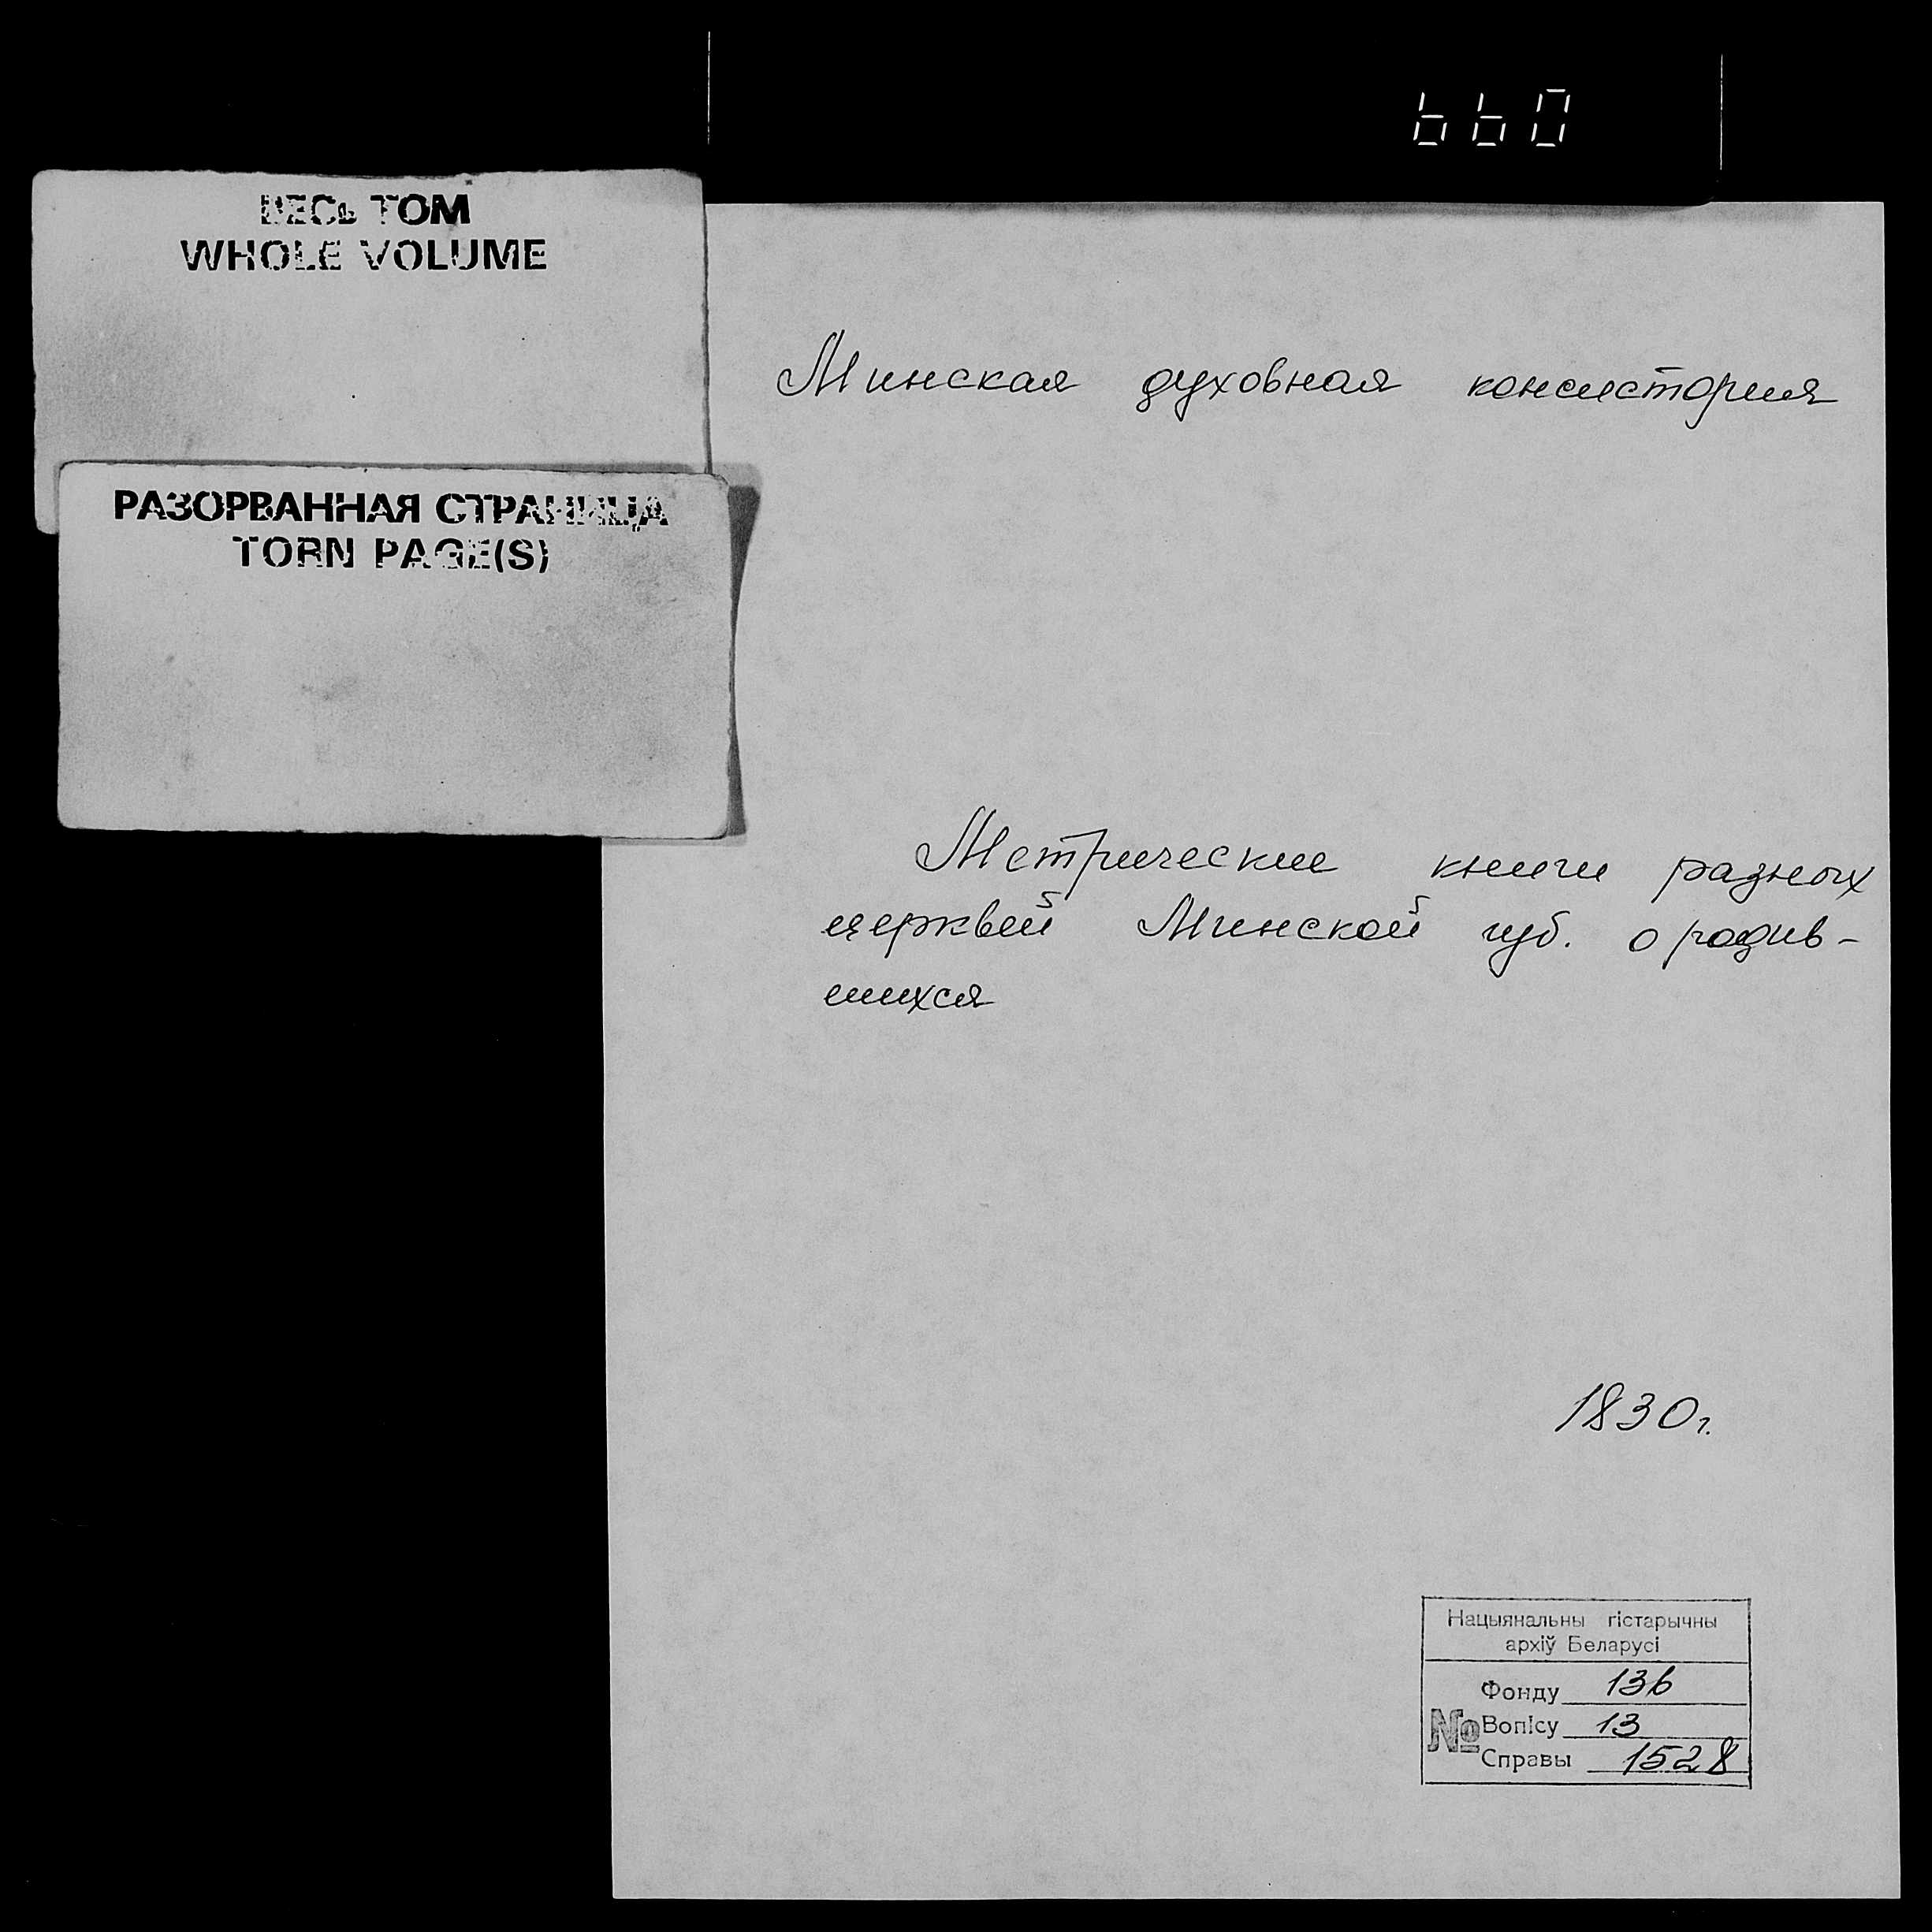 660
ВЕСЬ ТОМ
WHOLE VOLUME
РАЗОРВАННАЯ СТРАНИЦА
TORN PAGE(S)
Минская духовная консистория
Метрические книги разных
церквей Минской губ. о родив-
шихся
1830г.
Нацыянальны гістарычны
архіў Беларусі
Фонду 136
№ Вопісу 13
Справы 1528